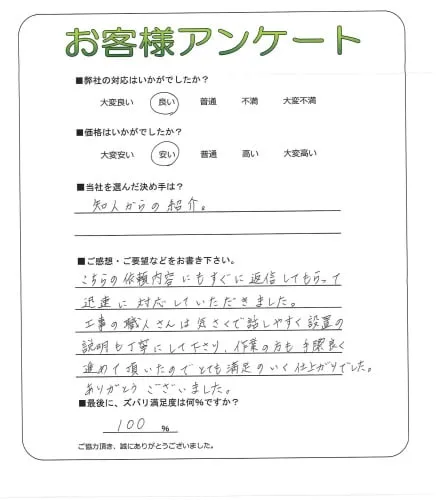 お客様アンケート
■弊社の対応はいかがでしたか?
大変良い 良い 普通 不満 大変不満
■価格はいかがでしたか?
大変安い 安い 普通 高い 大変高い
■当社を選んだ決め手は?
知人からの紹介。
■ご感想・ご要望などをお書き下さい。
こちらの依頼内容にもすぐに返信してもらって
迅速に対応していただきました。
工事の職人さんは気さくで話しやすく設置の
説明も丁寧にして下さり、作業の方も手際良く
進めて頂いたのでとても満足のいく仕上がりでした。
ありがとうございました。
■最後に、ズバリ満足度は何%ですか?
100 %
ご協力頂き、誠にありがとうございました。